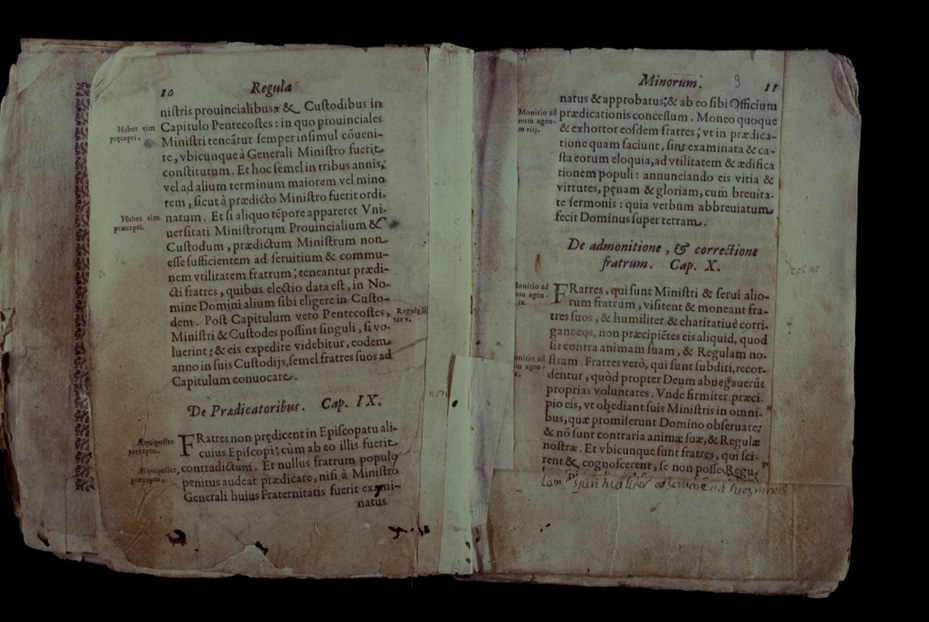 10 Regula
nistris prouincialibus, & Custodibus in
Capitulo Pentecostes: in quo prouinciales
Habet vim
præcepti.
Ministri teneãtur semper insimul cõueni-
re, vbicunque à Generali Ministro fuerit
constitutum. Et hoc semel in tribus annis,
vel ad alium terminum maiorem vel mino
rem, sicut à prædicto Ministro fuerit ordi-
Habet vim
præcepti.
natum. Et si aliquo tẽpore appareret Vni-
uersitati Ministrorum Prouincialium &
Custodum, prædictum Ministrum non
esse sufficientem ad seruitium & commu-
nem vtilitatem fratrum; teneantur prædi-
cti fratres, quibus electio data est, in No-
mine Domini alium sibi eligere in Custo-
dem. Post Capitulum verò Pentecostes,
Ministri & Custodes possint singuli, si vo-
luerint; & eis expedire videbitur, eodem
anno in suis Custodijs, semel fratres suos ad
Capitulum conuocare.
De Prædicatoribus. Cap. IX.
Æquipollet
præcepto.
FRatres non prędicent in Episcopatu ali-
cuius Episcopi; cùm ab eo illis fuerit
Æquipollet
præcepto.
contradictum. Et nullus fratrum populo
penitus audeat prædicare, nisi à Ministro
Generali huius Fraternitatis fuerit exami-
natus
Minorum. 9 11
natus & approbatus; & ab eo sibi Officium
Monitio ad
num agen-
m viij.
prædicationis concessum. Moneo quoque
& exhortor eosdem fratres; vt in prædica-
tione quam faciunt, sint examinata & ca-
sta eorum eloquia, ad vtilitatem & ædifica
tionem populi: annunciando eis vitia &
virtutes, pęnam & gloriam, cum breuita-
te sermonis: quia verbũm abbreuiatum
fecit Dominus super terram.
De admonitione, & correctione
fratrum. Cap. X.
Monitio ad
agen-
ix.
FRatres, qui sunt Ministri & serui alio-
rum fratrum, visitent & moneant fra-
tres suos, & humiliter & charitatiuè corri-
gant eos, non præcipiẽtes eis aliquid, quod
sit contra animam suam, & Regulam no-
ad
agen-
x.
stram. Fratres verò, qui sunt subditi, recor-
dentur, quòd propter Deum abnegauerũt
proprias voluntates. Vnde firmiter præci-
pio eis, vt obediant suis Ministris in omni-
bus, quæ promiserunt Domino obseruare;
& nõ sunt contraria animæ suæ, & Regulæ
nostræ. Et vbicunque sunt fratres, qui sci-
rent & cognoscerent, se non posse Regu-